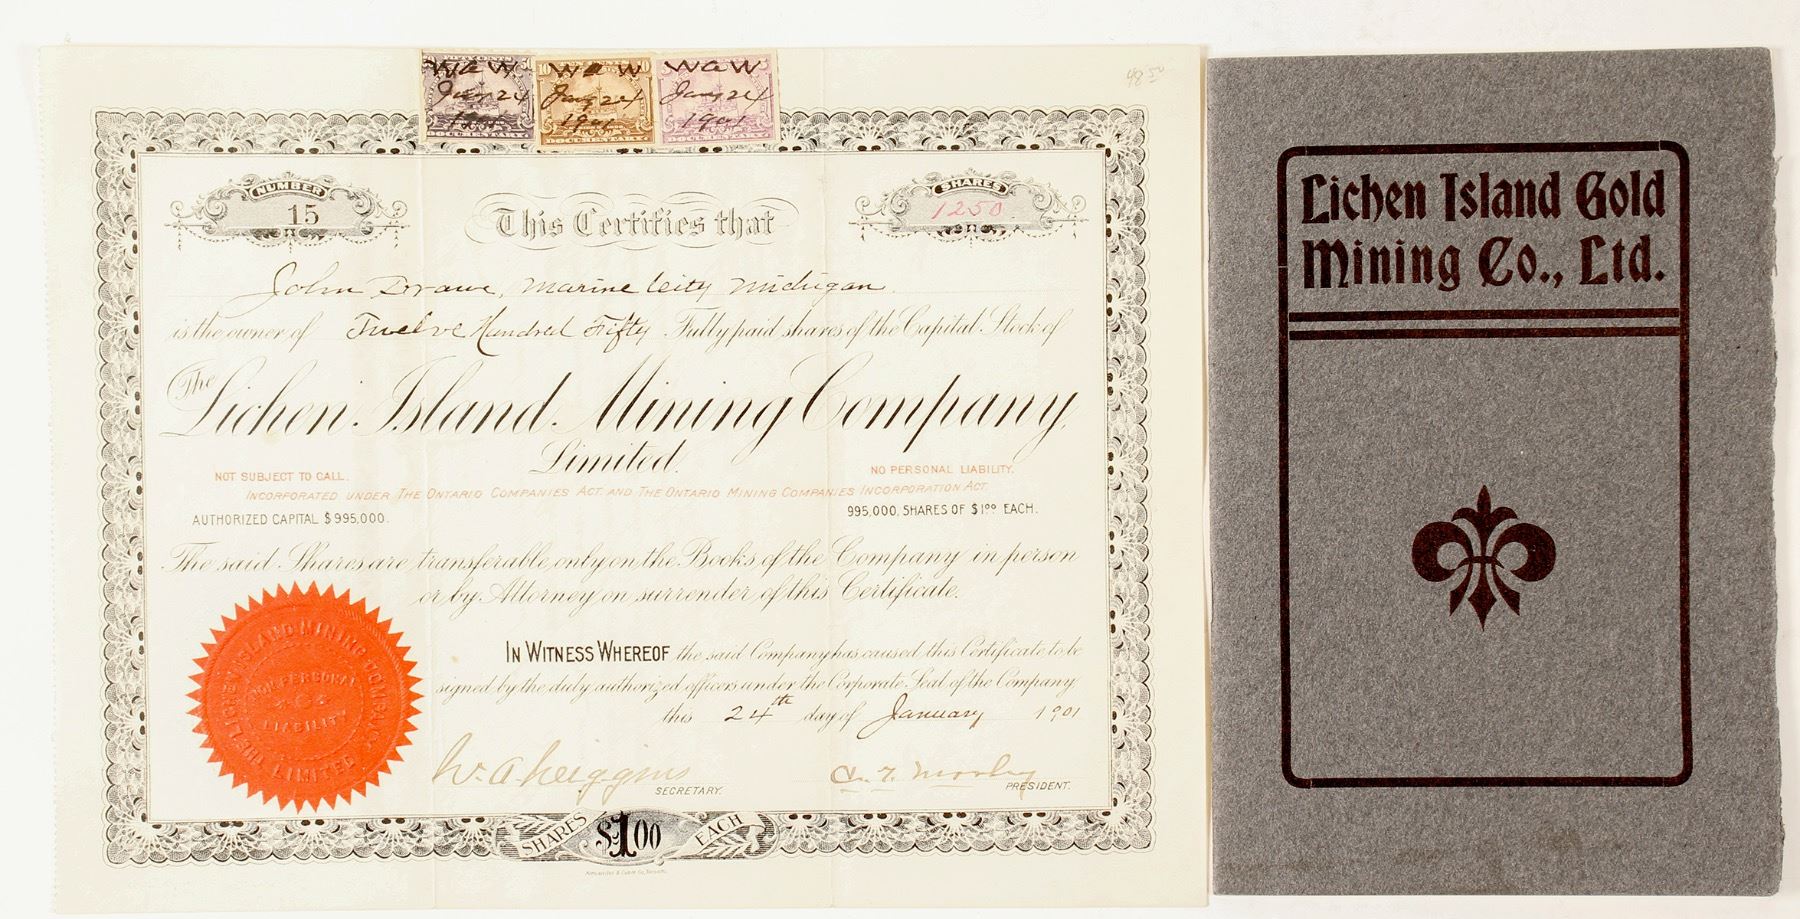 W A W W A W W A W
Jany 24 Jany 24 Jany 24
1901 1901 1901
DOCUMENTARY DOCUMENTARY DOCUMENTARY
NUMBER
15
SHARES
1250
This Certifies that
John Marine City Michigan
is the owner of Twelve Hundred Fifty Fully paid shares of the Capital Stock of
The Lichen Island Mining Company,
Limited.
NOT SUBJECT TO CALL.
NO PERSONAL LIABILITY.
INCORPORATED UNDER THE ONTARIO COMPANIES ACT. AND THE ONTARIO MINING COMPANIES INCORPORATION ACT.
AUTHORIZED CAPITAL $995,000.
995,000, SHARES OF $1.00 EACH.
The said Shares are transferable only on the Books of the Company in person
or by Attorney on surrender of this Certificate.
IN WITNESS WHEREOF the said Company has caused this Certificate to be
signed by the duly authorized officers under the Corporate Seal of the Company
this 24th day of January 1901
SECRETARY.
PRESIDENT.
THE LICHEN ISLAND MINING COMPANY LIMITED
NON PERSONAL
LIABILITY
SHARES $1.00 EACH
Lichen Island Gold
Mining Co., Ltd.